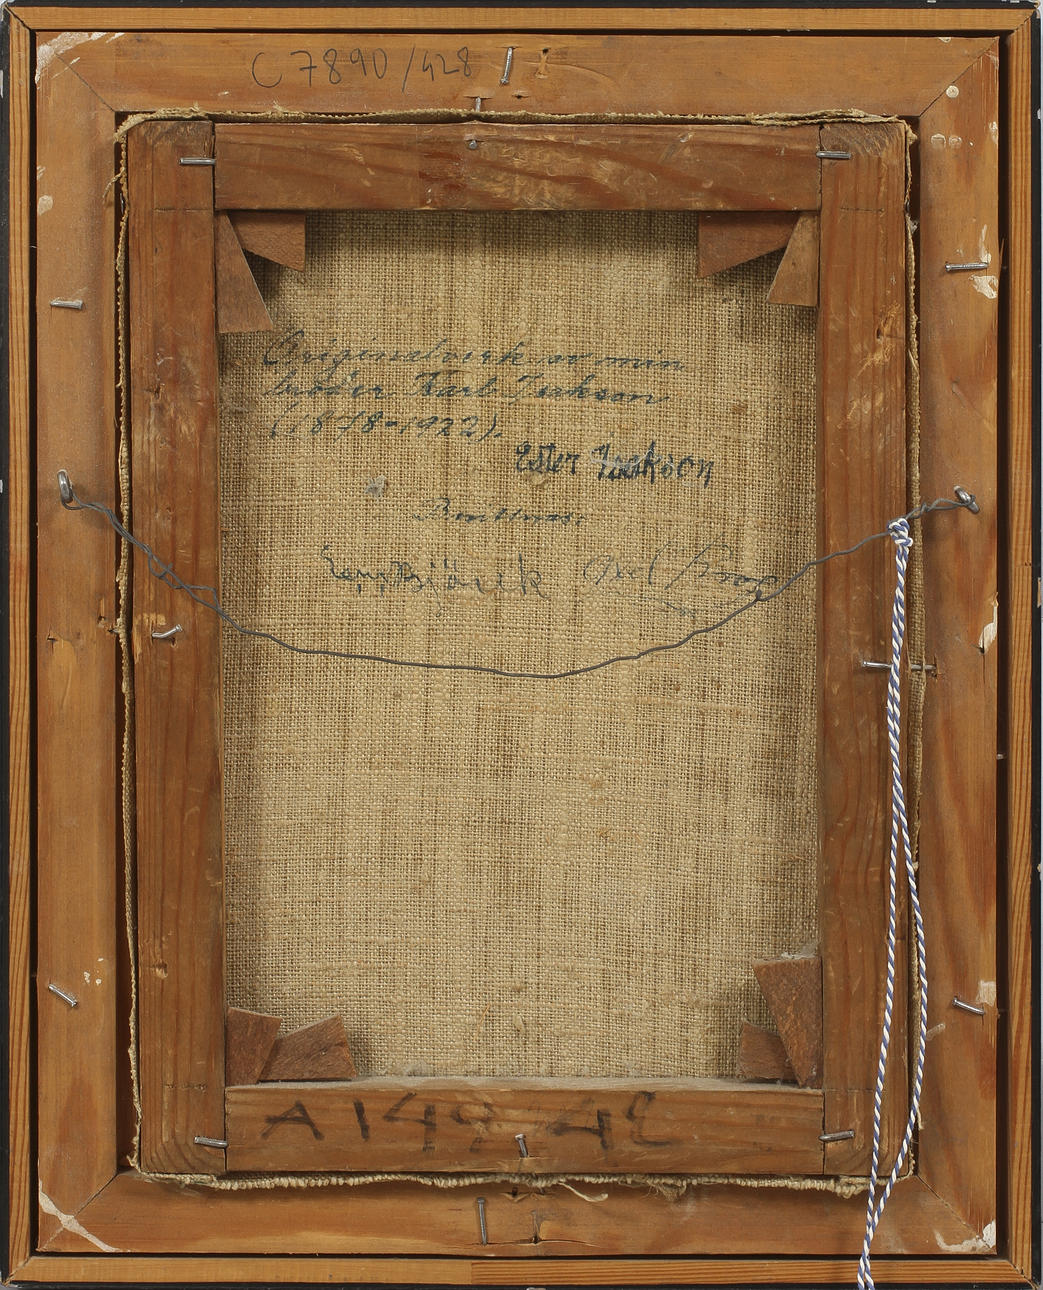 C 7890 /428
Originalverk av min
broder Karl Isakson
(1878-1922).
Ester Isakson
Bevittnas:
Björck Axel
A 149 4